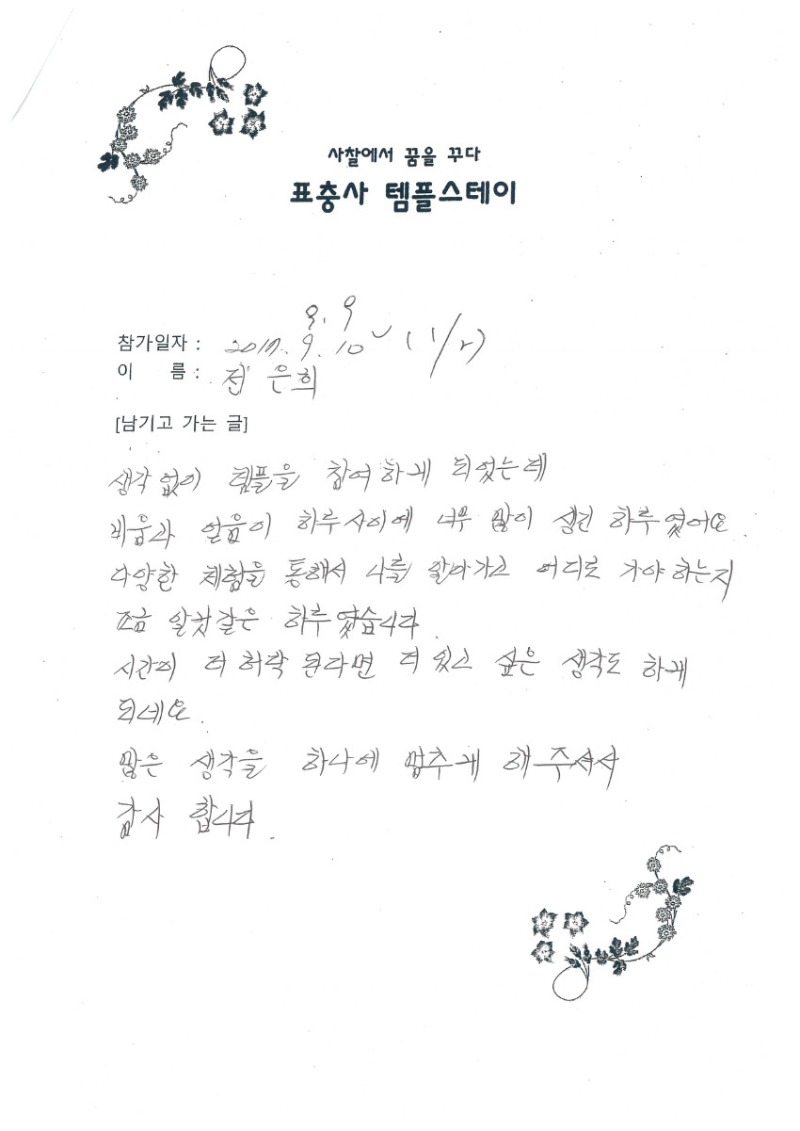 사찰에서 꿈을 꾸다
표충사 템플스테이
9. 9
참가일자 : 2017. 9. 10 (1/2)
이 름 : 은희
[남기고 가는 글]
생각 없이 템플을 참여하게 되었는데
비움과 얻음이 하루사이에 너무 많이 생긴 하루 였어요
다양한 체험을 통해서 나를 알아가고 어디로 가야 하는지
조금 알것같은 하루 였습니다.
시간이 더 허락 된다면 더 있고 싶은 생각도 하게
되네요.
많은 생각을 하나에 멈추게 해 주셔서
감사 합니다.